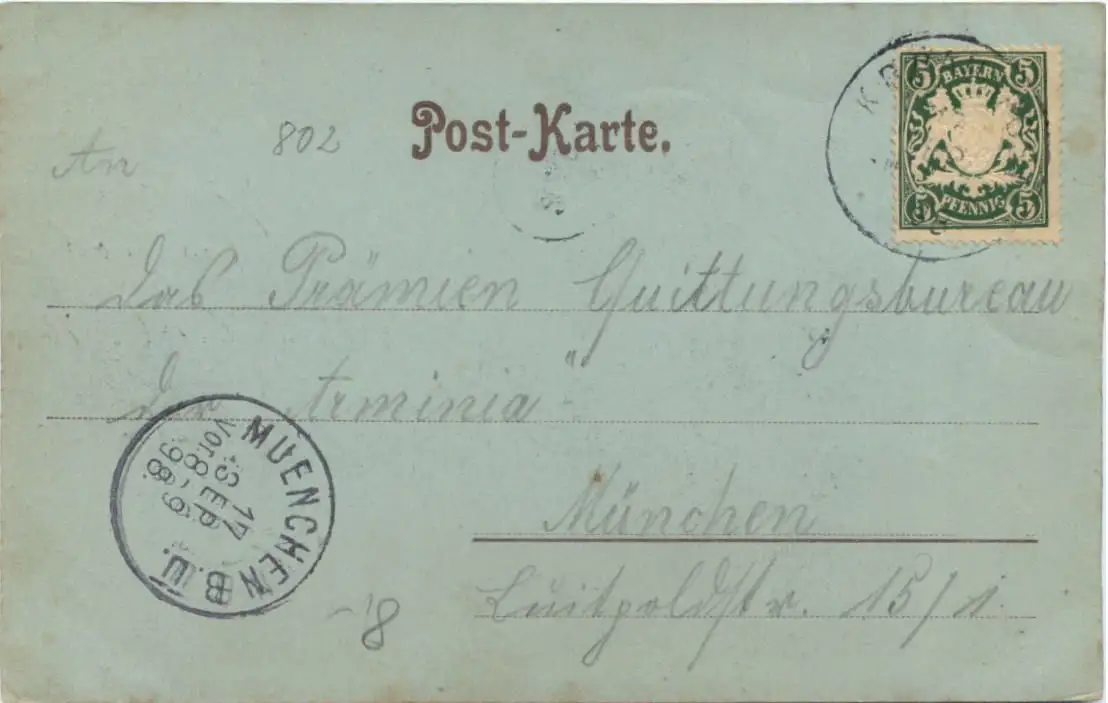 5 BAYERN 5
5 PFENNIG 5
Post-Karte.
802
An
das Prämien Quittungsbureau
der "Arminia"
München
Luitpoldstr. 15/1.
MUENCHEN B.U.
17
SEP
Vor. 8-9
98.
8,-